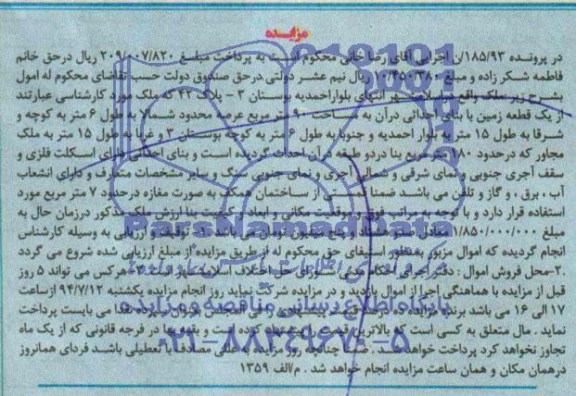 مزایده
در پرونده ۱۸۵/۹۳/ن اجرایی آقای رضا خانی محکوم است به پرداخت مبلغ ۲۰۹/۰۰۷/۸۲۰ ریال درحق خانم
فاطمه شکر زاده و مبلغ ۱۰/۴۵۰/۳۸۰ ریال نیم عشر دولتی درحق صندوق دولت حسب تقاضای محکوم له اموال
بشرح زیر ملک واقع انتهای بلواراحمدیه بوستان ۳ - پلاک ۲۲ که ملک مورد کارشناسی عبارتند
از یک قطعه زمین با بنای احداثی درآن به مساحت ۹۰ متر مربع عرصه محدود شمالا به طول ۶ متر به کوچه و
شرقا به طول ۱۵ متر به بلوار احمدیه و جنوبا به طول ۶ متر به کوچه بوستان ۳ و غربا به طول ۱۵ متر به ملک
مجاور که درحدود ۱۸۰ متر مربع بنا دردو طبقه درآن احداث گردیده است و بنای احداثی دارای اسکلت فلزی و
سقف آجری جنوبی و نمای شرقی و شمالی آجری و نمای جنوبی سنگ و سایر مشخصات متعارف و دارای انشعاب
آب ، برق ، و گاز و تلفن می باشد ضمنا از ساختمان همکف به صورت مغازه درحدود ۷ متر مربع مورد
استفاده قرار دارد و با توجه به مراتب فوق و موقعیت مکانی و ابعاد و کیفیت بنا ارزش ملک مذکور درزمان حال به
مبلغ ۱/۸۵۰/۰۰۰/۰۰۰ می باشد که توقیف و ارزیابی به وسیله کارشناس
انجام گردیده که اموال مزبور بمنظور استیفای حق محکوم له از طریق مزایده از مبلغ ارزیابی شده شروع می گردد
.۲-محل فروش اموال : دفتر اجرای احکام مدنی شورای حل اختلاف هرکس می تواند ۵ روز
قبل از مزایده با هماهنگی اجرا از اموال بازدید و در مزایده شرکت نماید روز انجام مزایده یکشنبه ۹۴/۷/۱۲ ازساعت
۱۷ الی ۱۶ می باشد برنده مزایده ده درصد قیمت پیشنهادی را فی المجلس بعنوان سپرده نقدا می بایست پرداخت
نماید . مال متعلق به کسی است که بالاترین قیمت را پیشنهاد کرده است و بقیه بها در فرجه قانونی که از یک ماه
تجاوز نخواهد کرد پرداخت خواهد شد . ضمنا چنانچه روز مزایده به عللی مصادف با تعطیلی باشد فردای همانروز
درهمان مکان و همان ساعت مزایده انجام خواهد شد . م/الف ۱۳۵۹
ParsNamadData
پایگاه اطلاع رسانی مناقصه و مزایده
۰۲۱-۸۸۳۴۹۶۷۰-۵